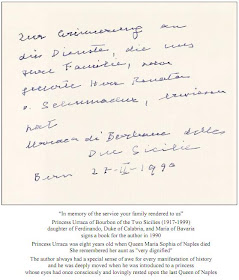 Zur Erinnerung an
die Dienste, die uns
Familie,
Renato
v. Schumacher, erwiesen
hat
Urraca di Borbone delle
Due Sicilie
Bern 1990
"In memory of the service your family rendered to us"
Princess Urraca of Bourbon of the Two Sicilies (1917-1999)
daughter of Ferdinando, Duke of Calabria, and Maria of Bavaria
signs a book for the author in 1990
Princess Urraca was eight years old when Queen Maria Sophia of Naples died
She remembered her aunt as "very dignified"
The author always had a special sense of awe for every manifestation of history
and he was deeply moved when he was introduced to a princess
whose eyes had once consciously and lovingly rested upon the last Queen of Naples